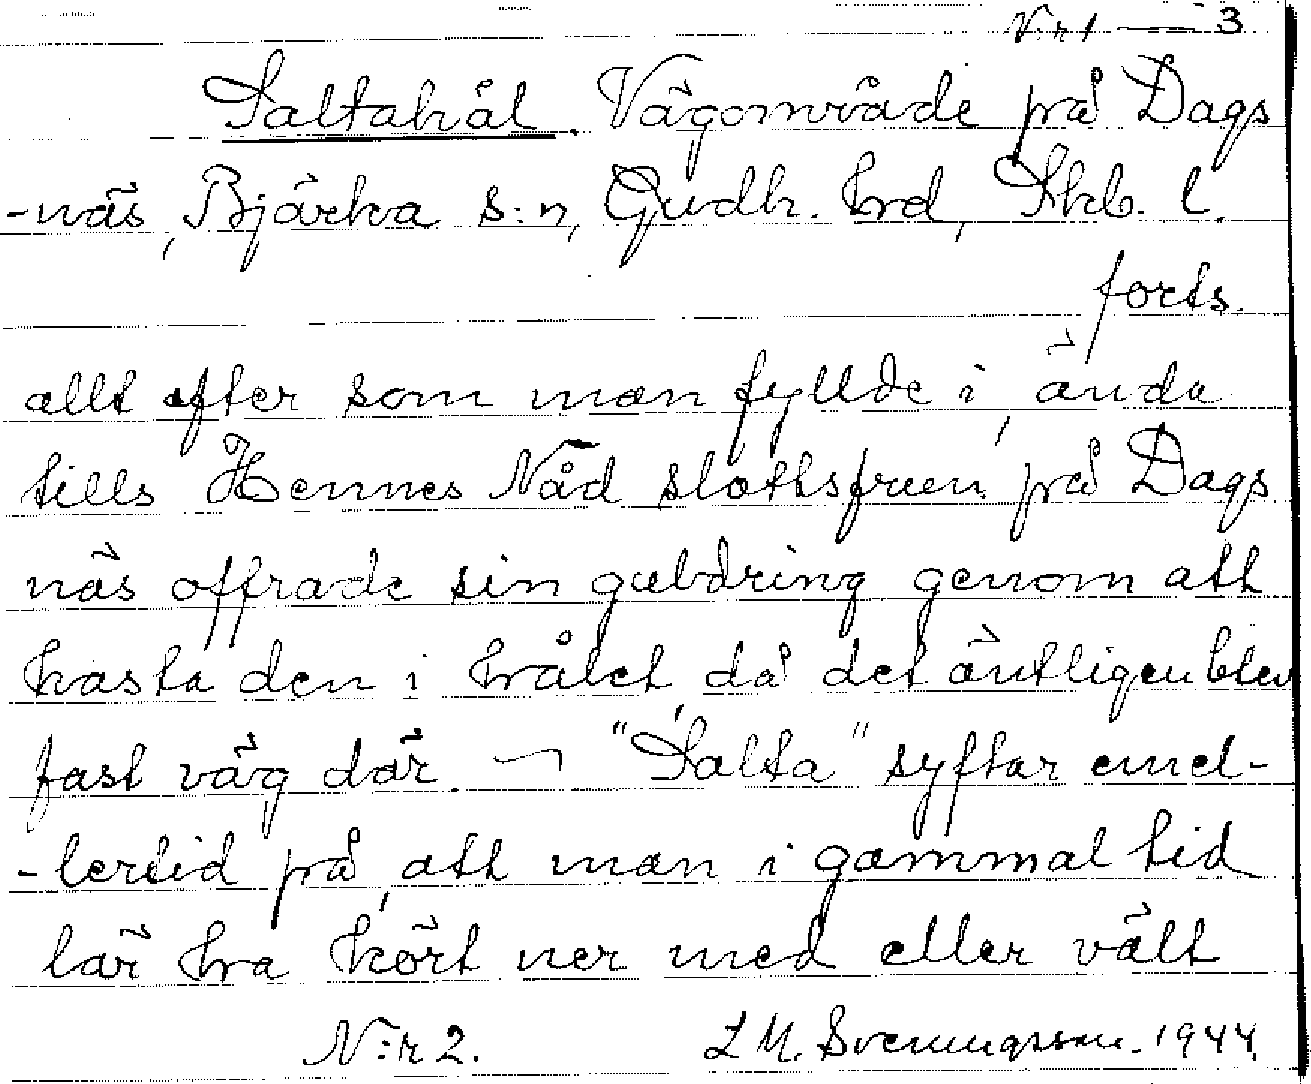 N:r 1 — 3
Saltahål. Vägområde på Dags
-näs, Bjärka s:n, Gudh. hrd, Skb. l.
forts.
allt efter som man fyllde i, ända
tills Hennes Nåd slottsfruen på Dags
näs offrade sin guldring genom att
kasta den i hålet, då det äntligen blev
fast väg där. — "Salta" syftar emel-
-lertid på, att man i gammal tid
lär ha kört ner med eller vält
N:r 2. L M. Svenungsson. 1944.